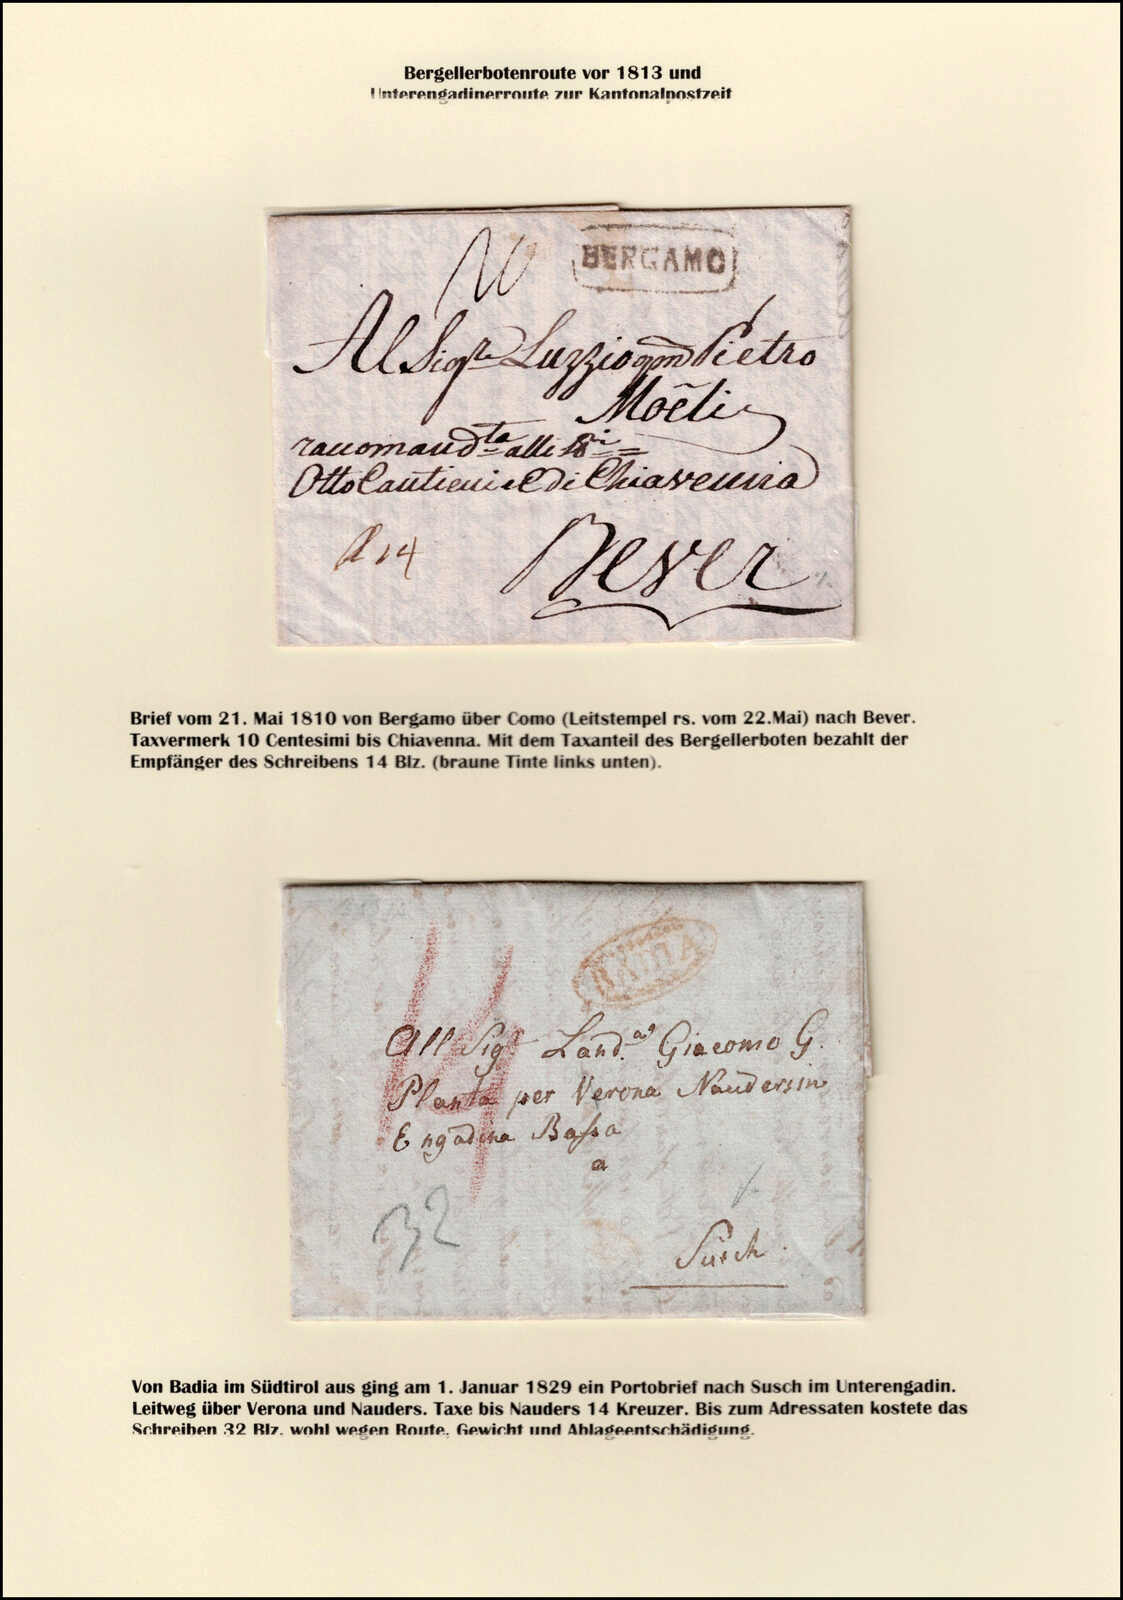 Bergellerbotenroute vor 1813 und
Unterengadinerroute zur Kantonalpostzeit
BERGAMO
10
Al Sigre Luzzio qm Pietro
Moëli
raccomandta alli Sri
Otto Cantieni e C di Chiavenna
14
Bever
Brief vom 21. Mai 1810 von Bergamo über Como (Leitstempel rs. vom 22.Mai) nach Bever.
Taxvermerk 10 Centesimi bis Chiavenna. Mit dem Taxanteil des Bergellerboten bezahlt der
Empfänger des Schreibens 14 Blz. (braune Tinte links unten).
BADIA
14
All Sigr Land.as Giacomo G.
Planta per Verona Naudersin
Engadina Bassa
a
32
Susch.
Von Badia im Südtirol aus ging am 1. Januar 1829 ein Portobrief nach Susch im Unterengadin.
Leitweg über Verona und Nauders. Taxe bis Nauders 14 Kreuzer. Bis zum Adressaten kostete das
Schreiben 32 Blz. wohl wegen Route, Gewicht und Ablageentschädigung.